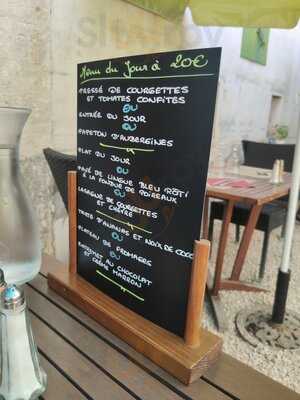 Menu du Jour à 20€
PRESSÉ DE COURGETTES
ET TOMATES CONFITES
OU
ENTRÉE DU JOUR
OU
PAPETON D'AUBERGINES
PLAT DU JOUR
OU
PAVÉ DE LINGUE BLEU RÔTI
À LA FONDUE DE POIREAUX
OU
LASAGNE DE COURGETTES
ET CHÈVRE
TARTE D'ANANAS ET NOIX DE COCO
OU
PLATEAU DE FROMAGES
OU
AU CHOCOLAT
ET CRÈME MARRON